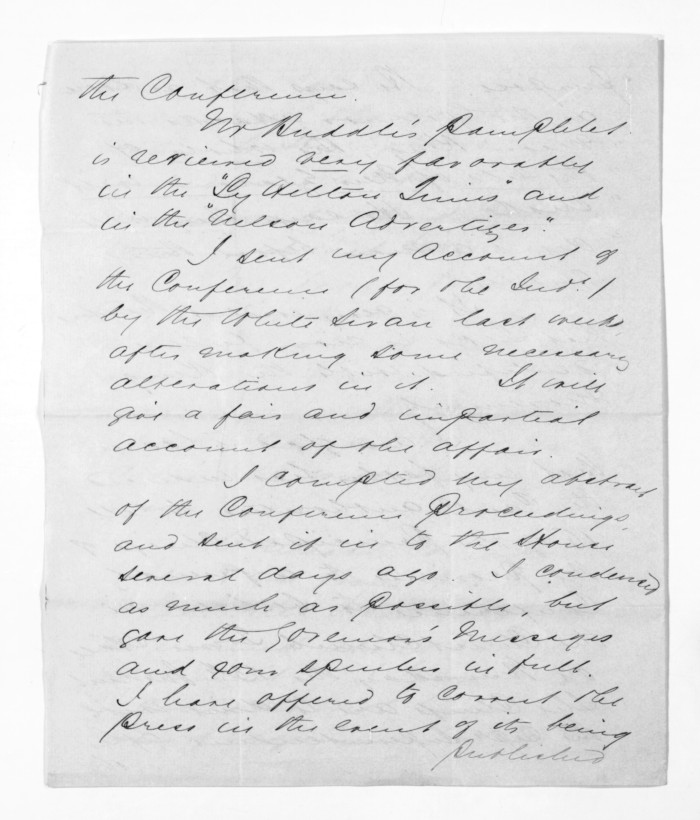 the Conference.
Mr Buddle's Pamphlet
is reviewed very favorably
in the "Lyttelton Times" and
in the "Nelson Advertizer".
I sent my Account of
the Conference (for the Indt.)
by the White Swan last week,
after making some necessary
alterations in it. It will
give a fair and impartial
account of the affair.
I compted my abstract
of the Conference Proceedings,
and sent it in to the House
several days ago. I condensed
as much as possible, but
gave the Governor's Messages
and your speeches in full.
I have offered to correct the
press in the event of its being
published